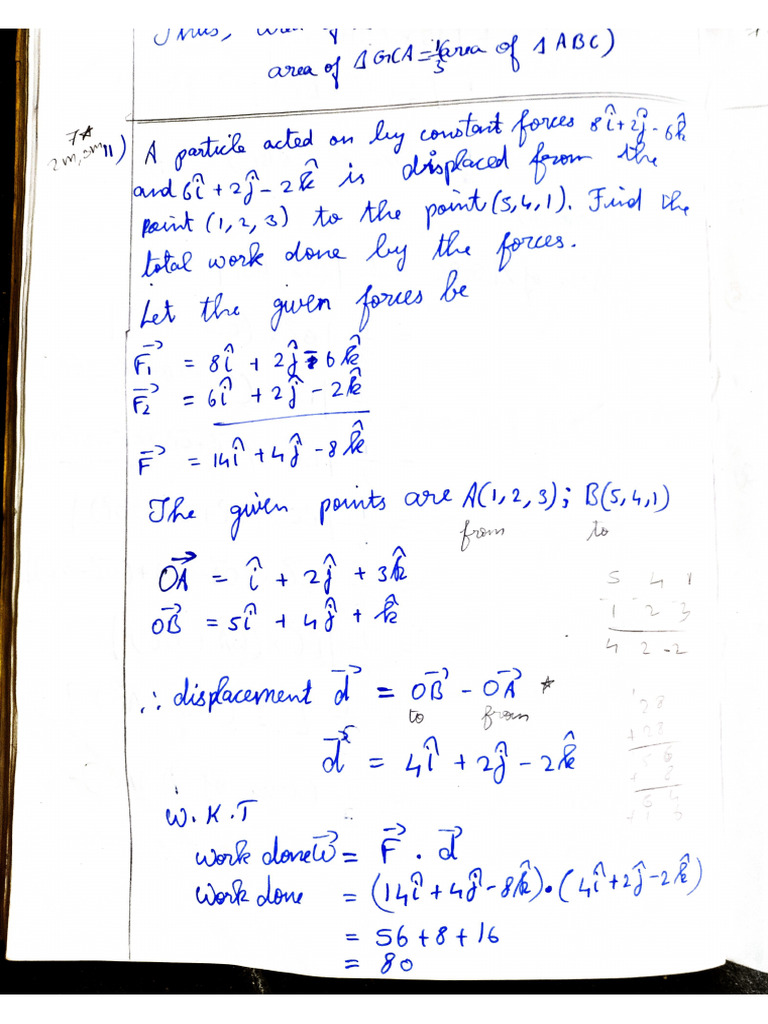 Thus, area of
area of Δ GCA = 1/3 (area of Δ ABC)
7*
2m, 3m
11) A particle acted on by constant forces 8î + 2ĵ - 6k̂
and 6î + 2ĵ - 2k̂ is displaced from the
point (1, 2, 3) to the point (5, 4, 1). Find the
total work done by the forces.
Let the given forces be
F⃗₁ = 8î + 2ĵ - 6k̂
F⃗₂ = 6î + 2ĵ - 2k̂
F⃗ = 14î + 4ĵ - 8k̂
The given points are A(1, 2, 3) ; B(5, 4, 1)
from to
OA⃗ = î + 2ĵ + 3k̂
OB⃗ = 5î + 4ĵ + k̂
5 4 1
- 1 - 2 - 3
4 2 -2
∴ displacement d⃗ = OB⃗ - OA⃗ *
to from
d⃗ = 4î + 2ĵ - 2k̂
28
+ 28
56
+ 8
64
W.K.T
work done W⃗ = F⃗ . d⃗
work done = (14î + 4ĵ - 8k̂) . (4î + 2ĵ - 2k̂)
= 56 + 8 + 16
= 80